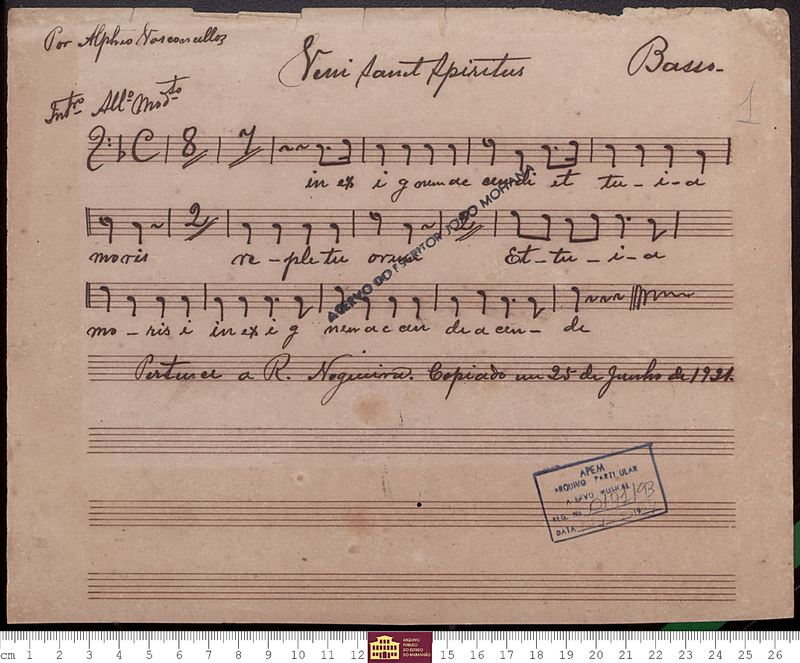 Por Alpheo Vasconcellos
Veni Sanct Spiritus
Basso-
1
Intro. Allo. Modto
8 7
in ex i g nem ac cendi et tu-i-a
2 2
moris re-ple tu orum Et-tu-i-a
mo-ris i in ex i g nem ac cen de a cen-de
Pertence a R. Nogueira. Copiado em 25 de Junho de 1921.
ACERVO DO ESCRITOR JOÃO MOHANA
APEM
ARQUIVO PARTICULAR
ACERVO MUSICAL
REG. No
DATA
cm 1 2 3 4 5 6 7 8 9 10 11 12 15 16 17 18 19 20 21 22 23 24 25 26
ARQUIVO
PÚBLICO
DO ESTADO
DO MARANHÃO